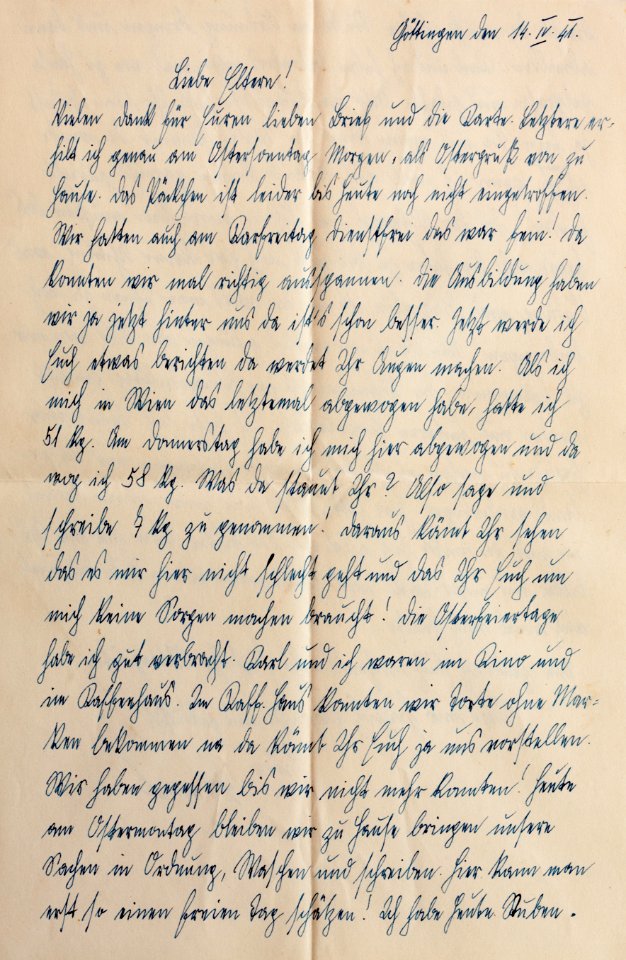 Göttingen den 14. IV. 41.
Liebe Eltern!
Vielen dank für Euren lieben Brief und die Karte. Letztere er-
hilt ich genau am Ostersonntag Morgen, als Ostergruß von zu
Hause. das Päckchen ist leider bis heute noch nicht eingetroffen.
Wir hatten auch am Karfreitag dienstfrei das war fein! da
konnten wir mal richtig ausspannen. die Ausbildung haben
wir ja jetzt hinter uns da ist's schon besser. Jetzt werde ich
Euch etwas berichten da werdet Ihr Augen machen. Als ich
mich in Wien das letztemal abgewogen habe, hatte ich
51 kg. Am donnerstag habe ich mich hier abgewogen und da
wog ich 58 kg. Was da staunt Ihr? Also sage und
schreibe 7 kg zu genommen! daraus könnt Ihr sehen
das es mir hier nicht schlecht geht und das Ihr Euch um
mich keine Sorgen machen braucht! die Osterfeiertage
habe ich gut verbracht. Karl und ich waren im Kino und
im Kaffeehaus. Im Kaff. Haus konnten wir Torte ohne Mar-
ken bekommen na da könnt Ihr Euch ja uns vorstellen.
Wir haben gegessen bis wir nicht mehr konnten! heute
am Ostermontag bleiben wir zu Hause bringen unsere
Sachen in Ordnung, Waschen und schreiben. hier kann man
erst so einen freien Tag schätzen! Ich habe heute Stuben.